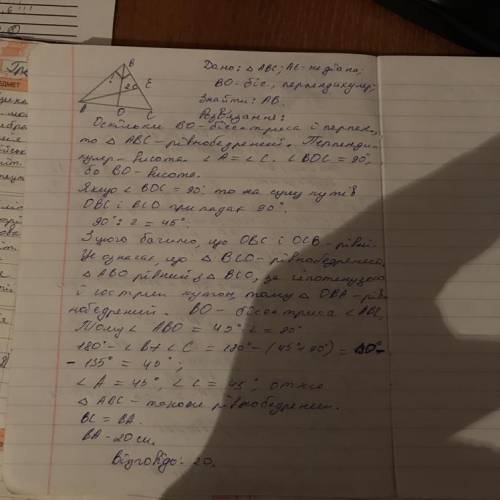 B
E
20
O
C
Дано: △ ABC;
BO-біс., перпендикуляр
Знайти: AB.
Розв'язання:
Оскільки BO-бісектриса і перпен,
то △ ABC-рівнобедрений. Перпенди-
куляр-висота. ∠A = ∠C. ∠BOC = 90°,
бо BO-висота.
Якщо ∠BOC = 90° то на суму кутів
OBC і BCO припадає 90°.
90° : 2 = 45°.
З цього бачимо, що OBC і OCB-рівні.
Це означає, що △ BCO-рівнобедрений,
△ ABO рівний з △ BCO, за гіпотенузою
і гострим кутом, тому △ OBA-рів
нобедрений. BO-бісектриса ∠ABC,
Тому ∠ABO = 45°
180° - ∠B + ∠C = 180° - (45° + 90°) =
- 135° = 45°;
∠A = 45°, ∠C = 45°, отже
△ ABC- також рівнобедрений.
BC = BA.
BA - 20 см.
Відповідь: 20.